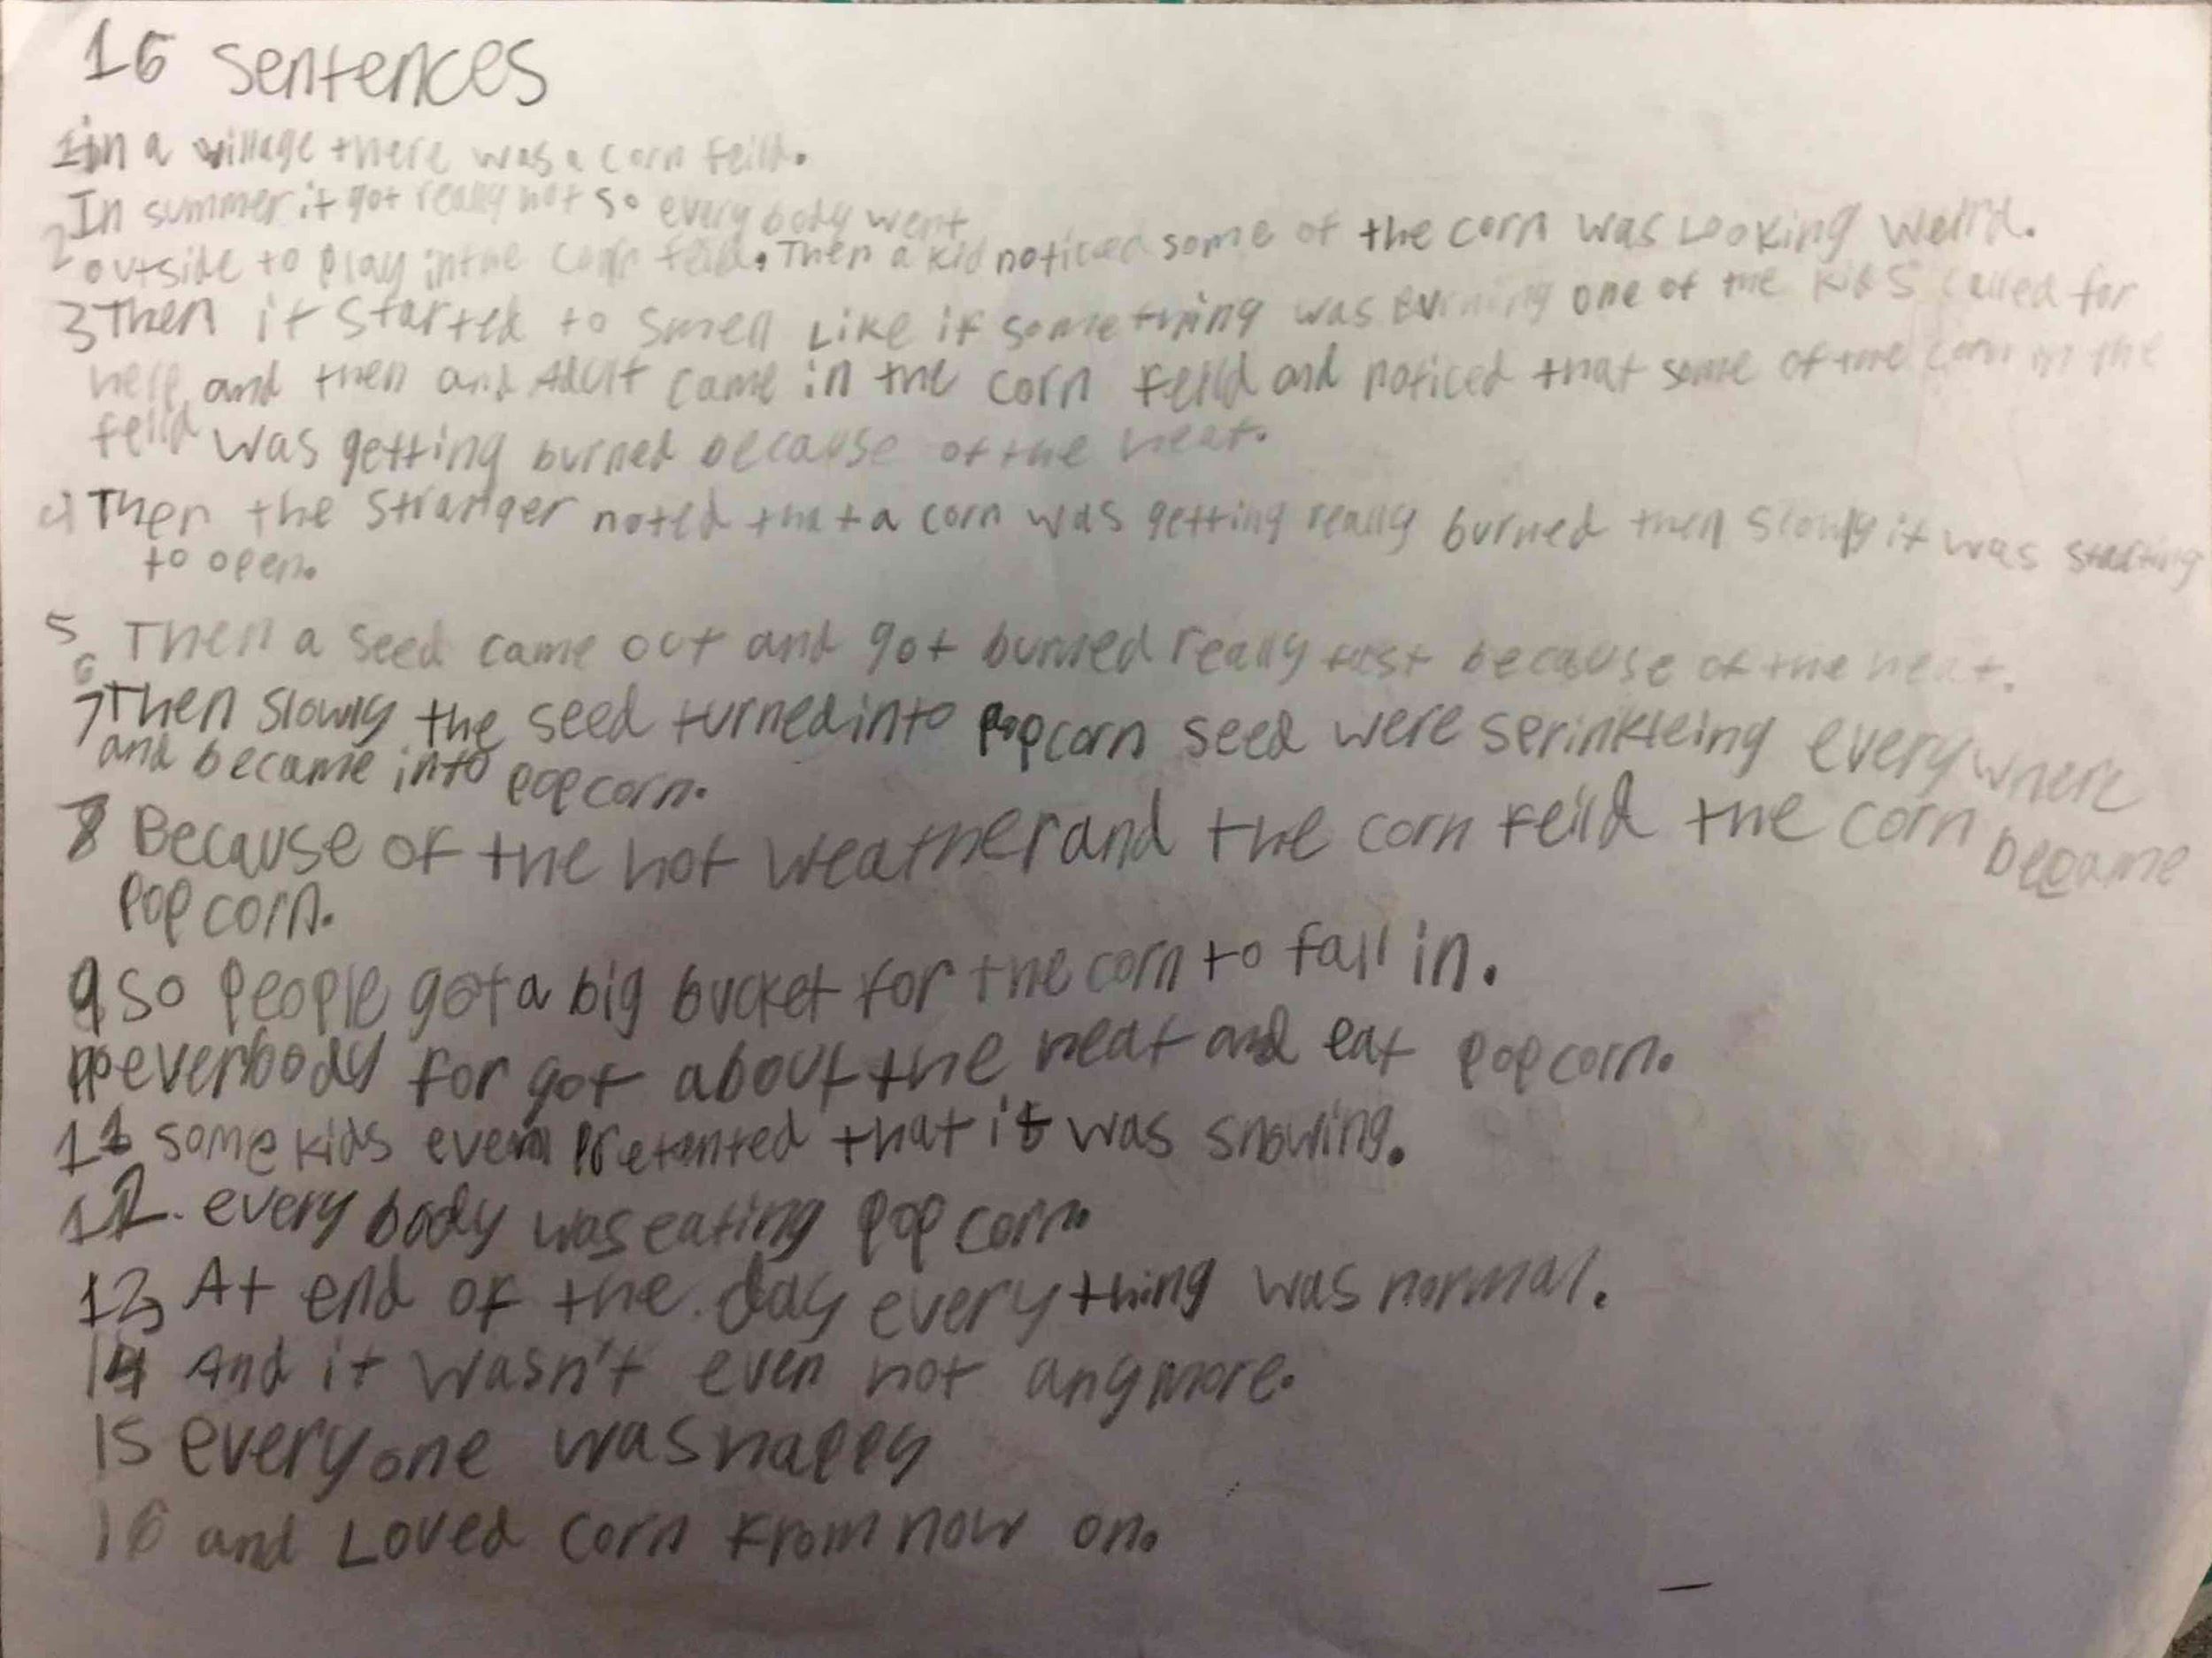 16 sentences
1 in a village there was a corn feild.
2 In summer it got really hot so every body went
outside to play in the corn feild. Then a kid noticed some of the corn was Looking weird.
3 Then it started to smell Like if something was burning one of the kids called for
help and then and Adult came in the corn feild and noticed that some of the corn in the
feild was getting burned because of the heat.
4 Then the stranger noted that a corn was getting really burned then slowly it was starting
to open.
5 Then a seed came out and got burned really fast because of the heat.
6
7 Then slowly the seed turned into popcorn seed were sprinkleing everywhere
and became into popcorn.
8 Because of the hot weather and the corn feild the corn became
popcorn.
9 so people got a big bucket for the corn to fall in.
everbody for got about the heat and eat popcorn.
11 some kids even pretented that it was snowing.
12. every body was eating pop corn.
13 At end of the day everything was normal.
14 And it wasn't even hot anymore.
15 everyone was happy
16 and Loved corn from now on.